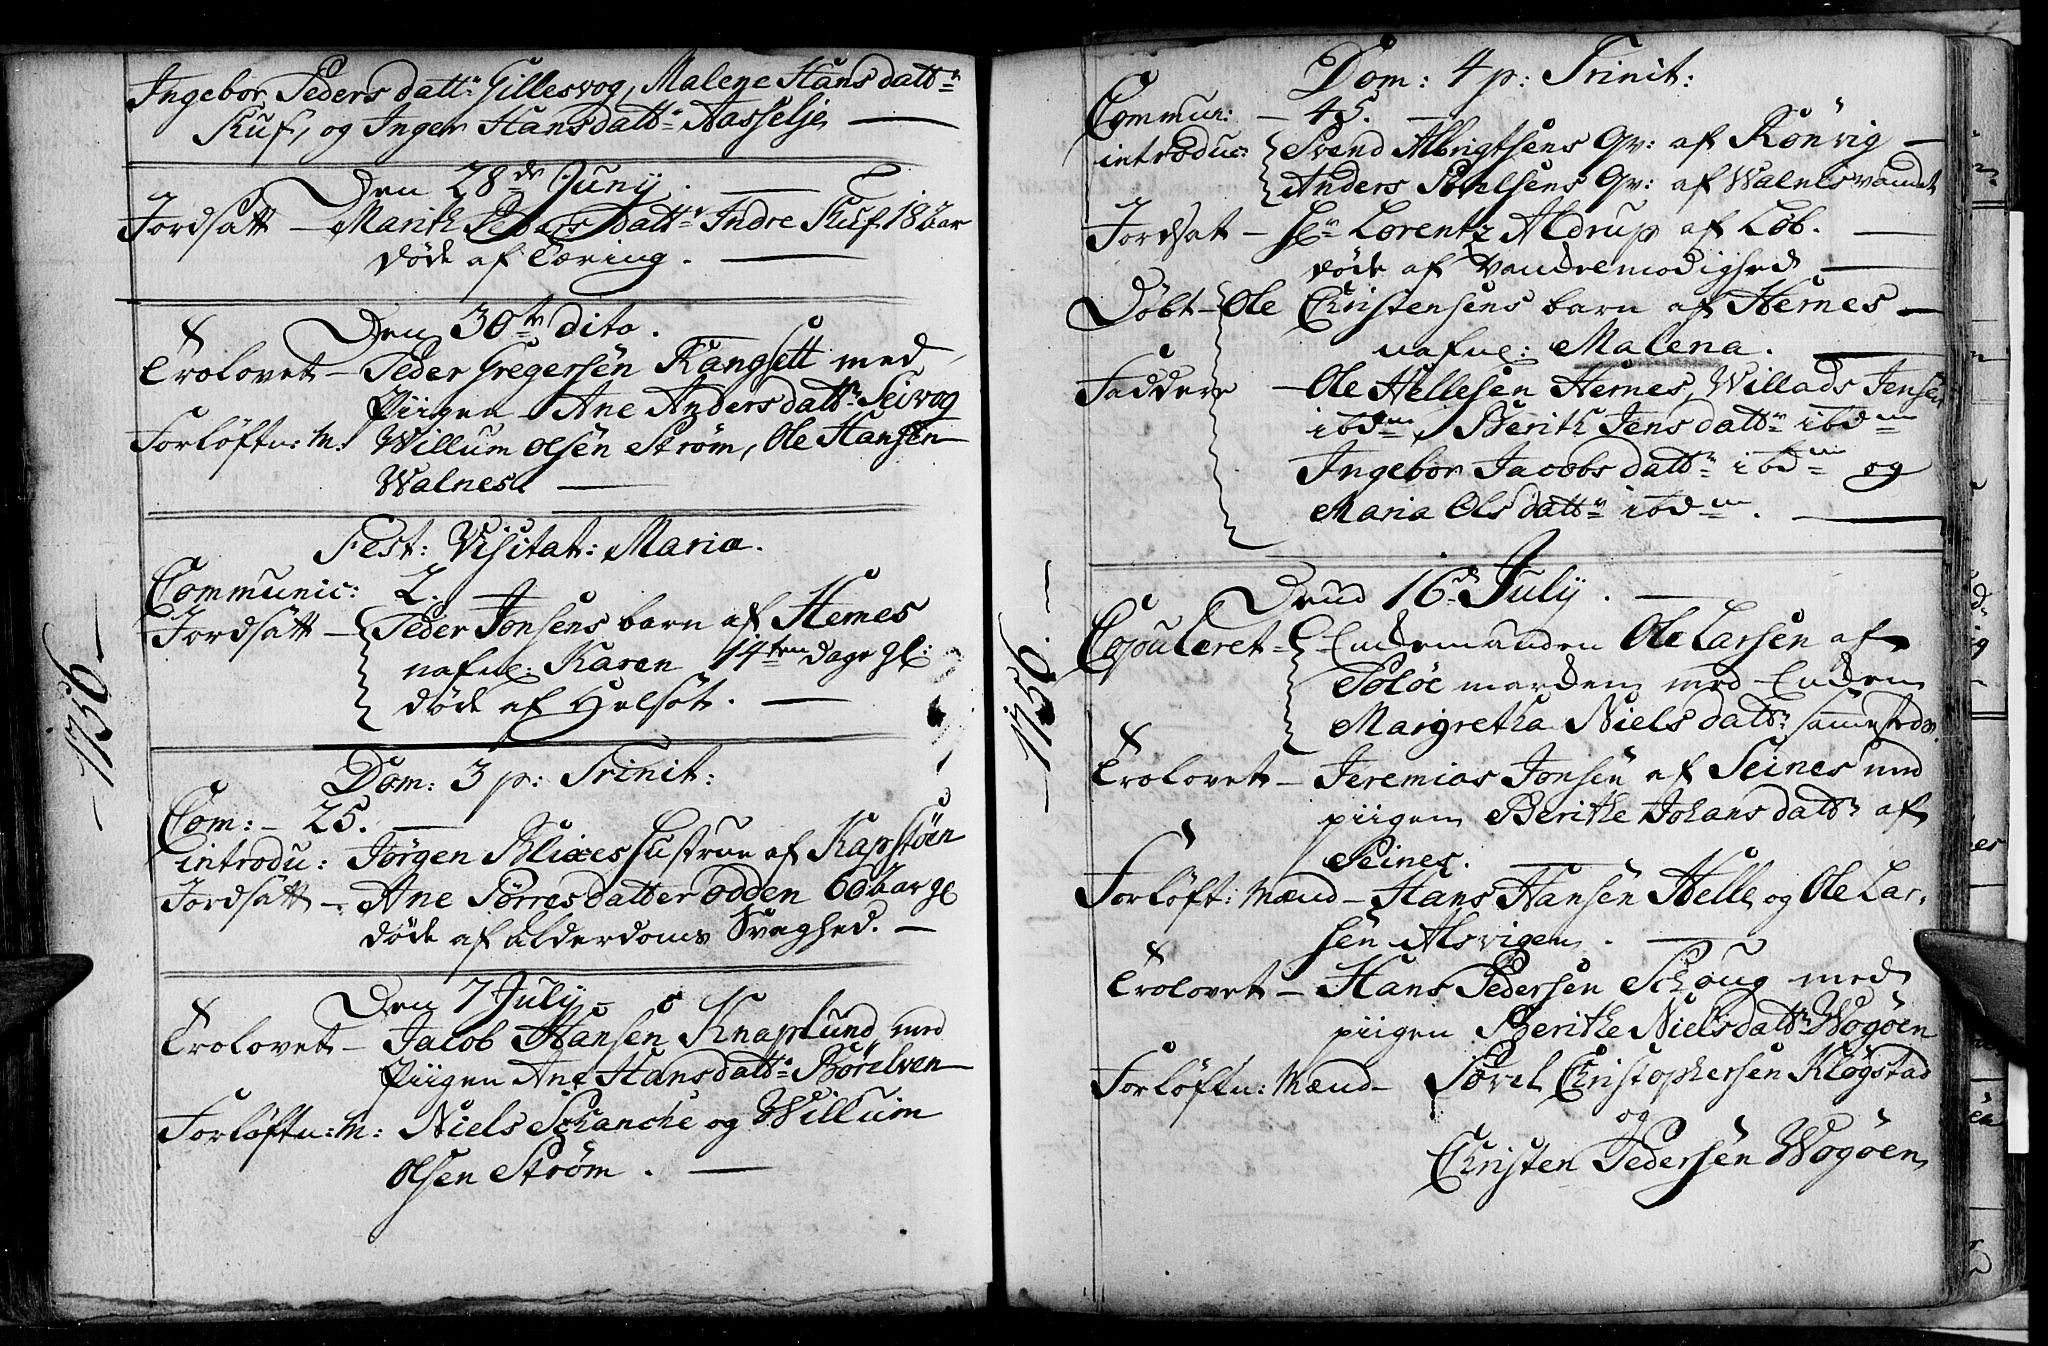 Ingebor Peders dattr Gillesvog, Malene Hans dattr
Kuf, og Inger Hansdattr Aasselje
Den 28de Juny.
Jordsatt – Marith Peders dattr Indre Kuf 18 aar
døde af Tæring.
Den 30te dito.
Trolovet – Peder Gregersen Kangsett med
Piigen Ane Anders dattr Seivog
Forløftn: M: Willum Olsen Strøm, Ole Hansen
Walnes.
Fest: Visitat: Mariæ.
Communic: 2.
Jordsatt – Peder Jonsens barn af Hernes
nafnl: Karen 14ten Dage gl:
døde af Helsöt.
– 1756 –
Dom: 3 p: Trinit:
Com: – 25.
introdu: Jørgen Blixes Hustrue af Kapstöen
Jordsatt – Ane Sørresdatter Odden 60 aar gl
døde af alderdoms Svaghed.
Den 7 July
Trolovet – Jacob Hansen Knaplund med
Piigen Ane Hansdattr Börelven
Forløftn: M: Niels Schancke og Willum
Olsen Strøm.
Dom: 4 p: Trinit:
Commun: – 45.
introduc: Svend Albrigtsens Qv: af Rönvig –
Anders Povelsens Qv: af Walnesvandet
Jordsat – Hr Lorentz Aldrup af Löb.
døde af Vandremodighed
Döbt – Ole Christensens barn af Hernes –
nafnl: Malena.
Faddere – Ole Hellesen Hernes, Willads Jensen
ibdm, Berith Jens dattr ibdm
Ingebor Jacobs dattr ibdm og
Maria Ols dattr ibdm.
– 1756. –
Dend 16d July.
Copuleret – Enkemanden Ole Larsen af
Soløe marken med Enken
Margretha Niels dattr sammesteds.
Trolovet – Jeremias Jonsen af Seines med
piigen Berithe Johans dattr af
Seines.
Forløft: Mænd – Hans Hansen Helle og Ole Lar-
sen Alsvigen.
Trolovet – Hans Pedersen Schoug med
piigen Berithe Nielsdattr Wogöen
Forløftn: Mænd – Povel Christophersen Klögstad
og
Christen Pedersen Wogöen